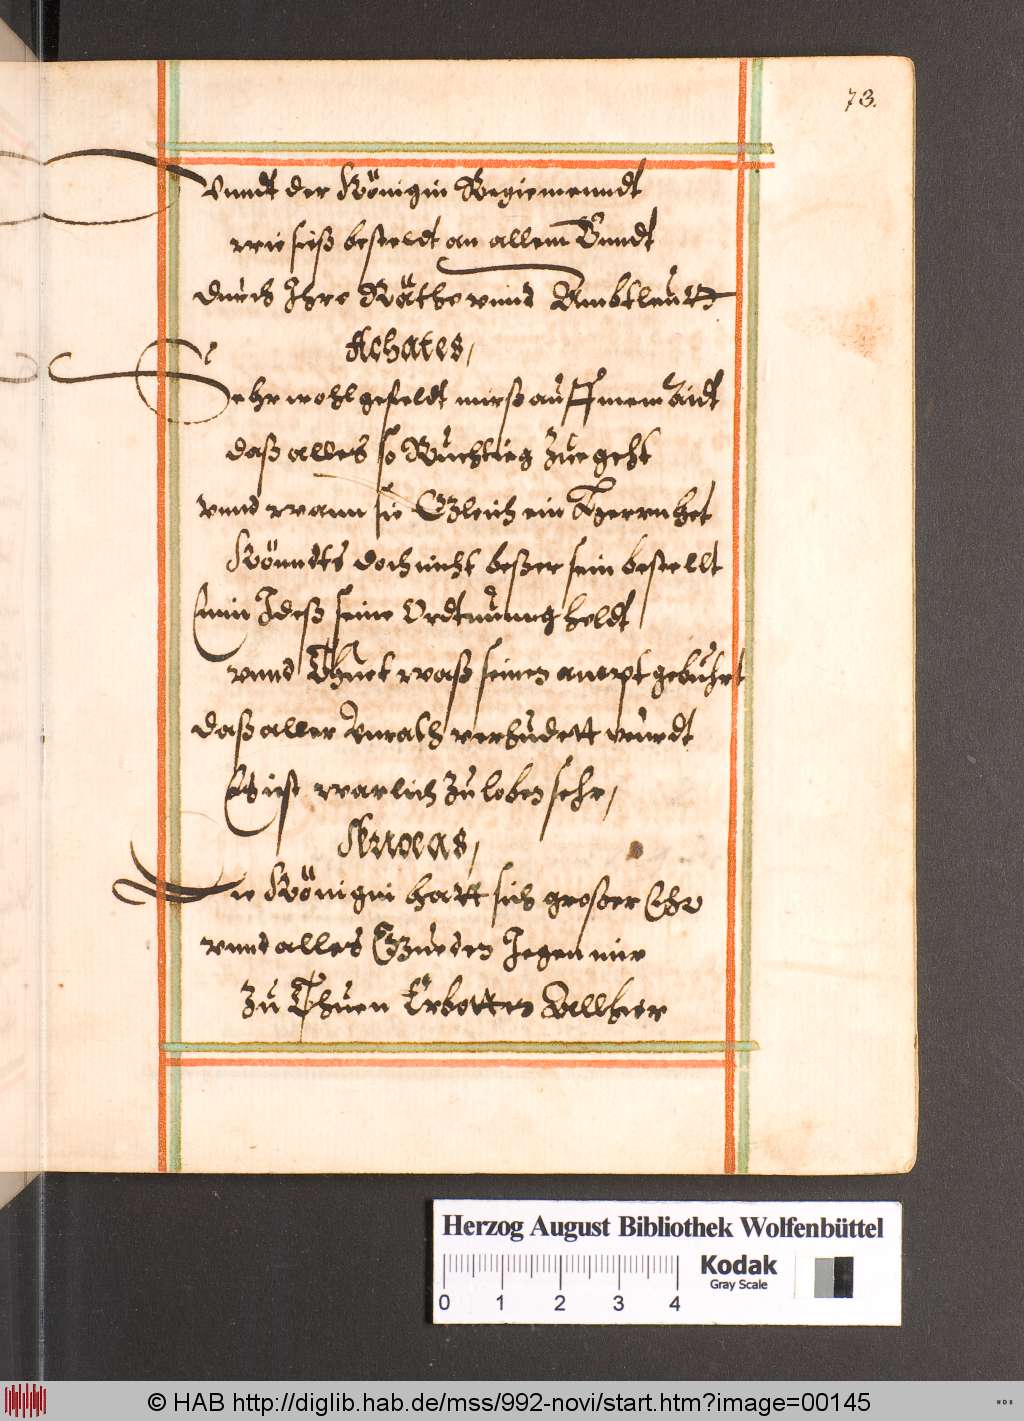 73.
Vnndt der Königin Regiemenndt
wie sieß besteldt an allem Enndt
durch Ihre Räthe vnnd Ambtleutt
Achates,
Sehr wohl gefieldt mirß auff mein Aidt
daß alles so Richtieg zue geht
vnnd wann sie Gleich ein Herrn het
Könndts doch nicht beßer sein bestellt
Ein Ideß seine Ordtnunng heldt
vnnd Thuet waß seinen ampt gebührt
daß aller Vnrath verhüdett würdt
Es ist warlich zu loben sehr,
Aeneas,
Die Königin hatt sich großer Ehr
vnnd alles Gueden Iegen mir
zu Thuen Erbotten Allhier
Herzog August Bibliothek Wolfenbüttel
0 1 2 3 4
Kodak
Gray Scale
© HAB http://diglib.hab.de/mss/992-novi/start.htm?image=00145